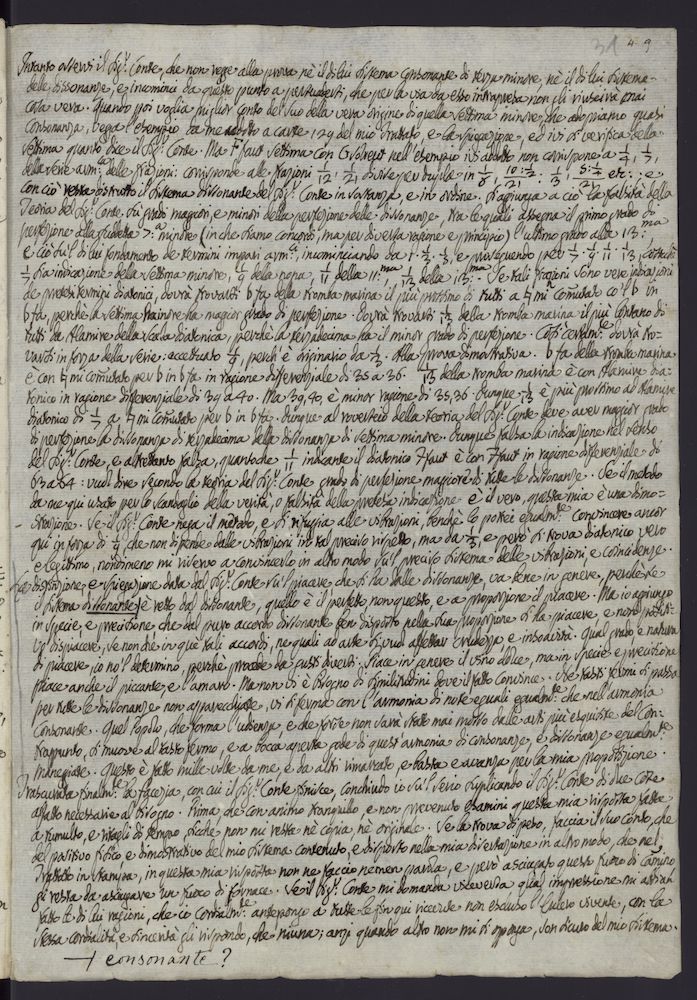 31 4 9
Intanto osservi il Sig.r Conte, che non regge alla prova nè il di lui sistema consonante di terza minore, nè il di lui sistema
delle dissonanze, e incominci da questo punto a persuadersi, che per la via da esso intrapresa non gli riuscirà mai
cosa vera. Quando poi voglia miglior conto del suo della vera origine di quella settima minore, che adopriamo quasi
consonanza, vegga l'esempio da me addotto a carte 129 del mio Trattato, e la spiegazione, ed ivi si verifica della
settima quanto dice il Sig.r Conte. Ma F faut settima con Gsolreut nell'esempio ivi addotto non corrisponde a 1/4, 1/7,
della serie arm.ca delle frazioni: corrisponde alle frazioni
con ciò resta distrutto il sistema dissonante del Sig.r Conte in sostanza, e in ordine. S'aggiunga a ciò la falsità della
Teoria del Sig.r Conte su' gradi maggiori, e minori della perfezione delle dissonanze, tra le quali assegna il primo grado di
perfezione alla sudetta 7.a minore (in che siamo concordi, ma per diversa ragione e principio) l'ultimo grado alla 13.ma
e ciò su'l di lui fondamento de termini impari arm.ci, incominciando da 1. 1/3. 1/5, e proseguendo per 1/7. 1/9. 1/11. 1/13, cosicchè
1/7 sia indicazione della settima minore, 1/9 della nona, 1/11 della 11.ma, 1/13 della 13.ma. Se tali frazioni sono vere indicazioni
de pretesi termini diatonici, dovrà trovarsi b fa della tromba marina il più prossimo di tutti a ♮ mi comutato co'l b in
b fa, perchè la settima minore ha maggior grado di perfezione. Dovrà trovarsi 1/13 della tromba marina il più lontano di
tutti da Alamire della scala diatonica, perchè la terzadecima ha il minor grado di perfezione. Così certam.te dovrà tro-
varsi in forza della serie: eccettuato 1/9, perch'è originario da 1/3. Alla prova dimostrativa. b fa della tromba marina
è con ♮ mi comutato per b in b fa in ragione differenziale di 35 a 36. 1/13 della tromba marina è con Alamire dia-
tonico in ragione differenziale di 39 a 40. Ma 39, 40, è minor ragione di 35, 36. Dunque 1/13 è più prossimo ad Alamire
diatonico di 1/7 a ♮ mi comutato per b in b fa. Dunque al rovescio della Teoria del Sig.r Conte deve aver maggior grado
di perfezione la dissonanza di terzadecima della dissonanza di settima minore. Dunque falsa la indicazione nel senso
del Sig.r Conte, e altrettanto falsa, quantochè 1/11 indicante il diatonico Ffaut è con Ffaut in ragione differenziale di
63 a 64: vuol dire secondo la teoria del Sig.r Conte grado di perfezione maggiore di tutte le dissonanze. Se il metodo
da me qui usato per lo scandaglio della verità, o falsità della pretesa indicazione è il vero, questa mia è una dimo-
strazione. Se il Sig.r Conte nega il metodo, e si rifuggia alle vibrazioni, benchè lo potrei egualm.te convincere ancor
qui in forza di 1/9 che non dipende dalle vibrazioni in tal preciso rispetto, ma da 1/3, e però si trova diatonico vero
e legitimo, nondimeno mi riservo a convincerlo in altro modo su'l preciso sistema delle vibrazioni, e coincidenze.
La distinzione, e spiegazione data dal Sig.r Conte su'l piacere che si ha dalle dissonanze, va bene in genere, perchè se
il sistema dissonante + è retto dal dissonante, quello è il perfetto non questo, e a proporzione il piacere. Ma io aggiungo
in specie, e precisione che dal puro accordo dissonante ben disposto nella sua proporzione si ha piacere, e non
dispiacere, se non che in que tali accordi, ne quali ad arte si vuol affettar crudezza, e insoavità. Qual grado e natura
di piacere, io no'l determino, perchè procede da gusti diversi. Piace in genere il vino dolce, ma in specie e precisione
piace anche il piccante, e l'amaro. Ma non vi è bisogno di similitudini dove il fatto convince. Ne tasti fermi di passo
per tutte le dissonanze non apparecchiate, vi si ferma con l'armonia di note eguali egualm.te che nell'armonia
consonante. Quel Popolo, che forma l'udienza, e che forse non sarà stato mai mosso dalle arti più esquisite del Con-
trappunto, si muove al tasto fermo, e a bocca aperta gode di quest'armonia di consonanze, e dissonanze egualm.te
maneggiate. Questo è fatto mille volte da me, e da altri rimarcato, e basta e avanza per la mia proposizione.
Trascurata finalm.te la facezia, con cui il Sig.r Conte finisce, conchiudo io su'l serio supplicando il Sig.r Conte di due cose
affatto necessarie al bisogno. Prima che con animo tranquillo, e non prevenuto esamini questa mia risposta fatta
a tumulto, e ritagli di tempo, sicchè non mi resta nè copia, nè originale. Se la trova di peso, faccia il suo conto, che
del positivo fisico, e dimostrativo del mio sistema contenuto, e disposto nella mia dissertazione in altro modo, che nel
Trattato in stampa, in questa mia risposta non ne faccio nemen parola, e però asciugato questo fuoco di camino
gli resta da asciugare un fuoco di fornace. Se il Sig.r Conte mi domanda viceversa qual impressione mi abbian
fatto le di lui ragioni, che io cordialm.te antepongo a tutte le fin qui ricevute non escluso l'Eulero vivente, con la
stessa cordialità, e sincerità gli rispondo, che niuna; anzi quando altro non mi si opponga, son sicuro del mio sistema.
+ consonante?